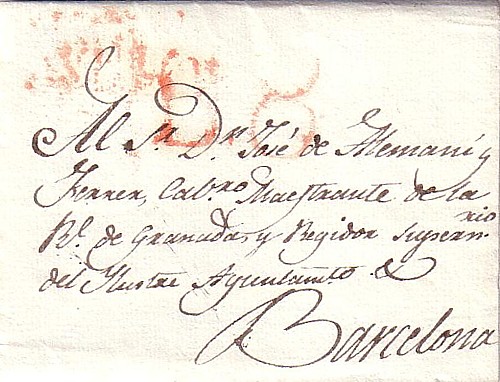 Al Sr. Dn. José de Alemani y
Ferrer, Cabro. Maestrante de la
Rl. de Granada, y Regidor Supernrio
del Ilustre Ayuntamto &
Barcelona